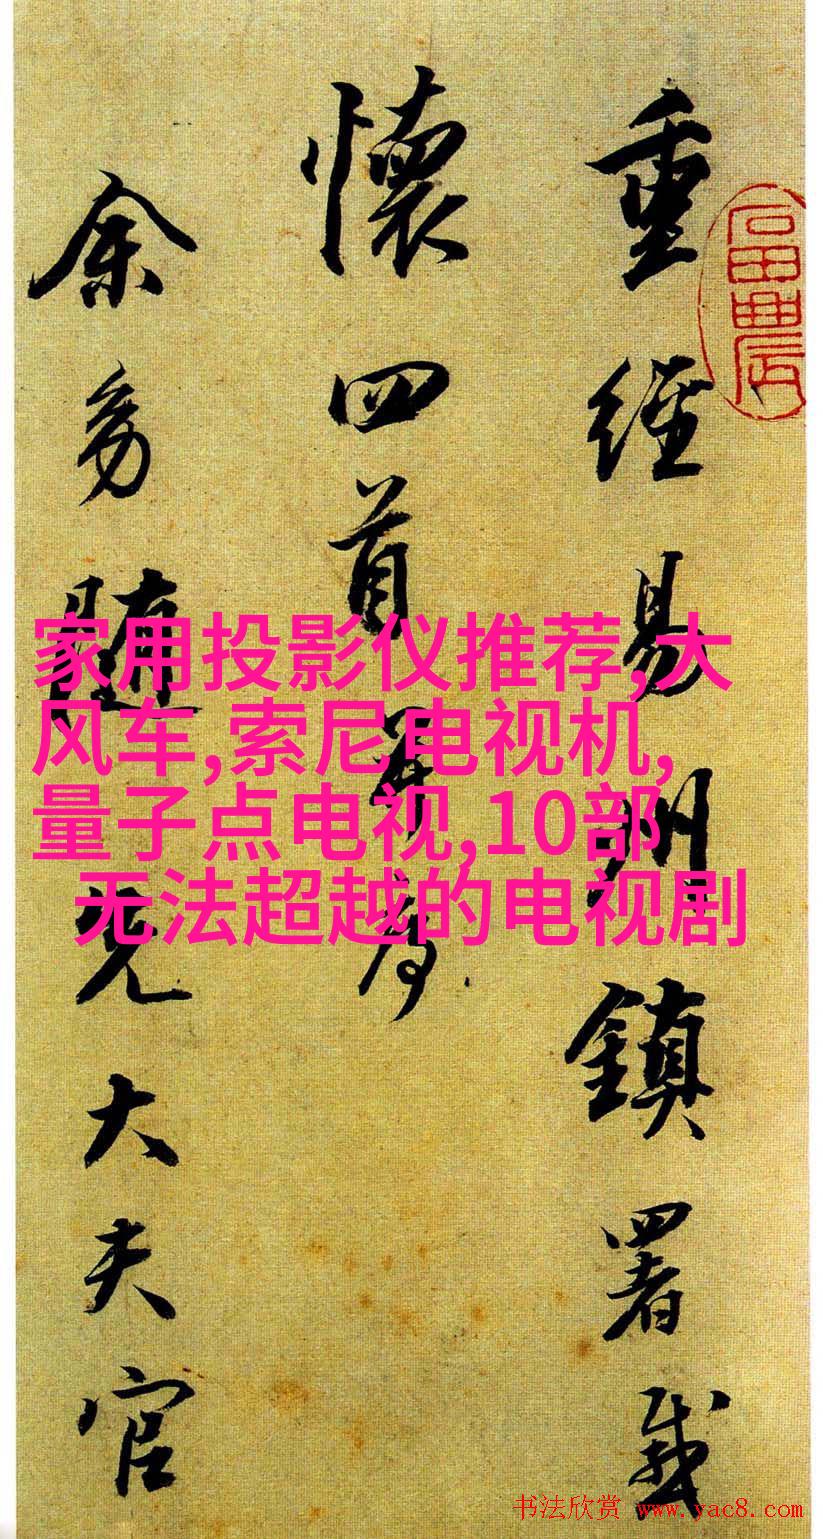 重經易州鎮署感
懷四首
余
隨先大夫官
家用投影仪推荐,大
风车,索尼电视机,
量子点电视,10部
无法超越的电视剧
书法欣赏 www.yac8.com